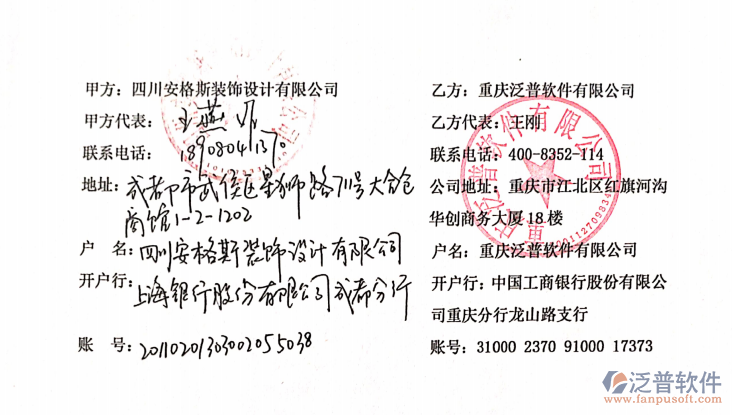 甲方：四川安格斯装饰设计有限公司
甲方代表：王燕
联系电话：18908041370
地址：成都市武侯区星狮路711号大合仓
商馆1-2-1202
户 名：四川安格斯装饰设计有限公司
开户行：上海银行股份有限公司成都分行
账 号：20110201303002055038
乙方：重庆泛普软件有限公司
乙方代表：王刚
联系电话：400-8352-114
公司地址：重庆市江北区红旗河沟
华创商务大厦 18 楼
户名：重庆泛普软件有限公司
开户行：中国工商银行股份有限公
司重庆分行龙山路支行
账号：31000 2370 91000 17373
重庆泛普软件有限公司
泛普软件
www.fanpusoft.com